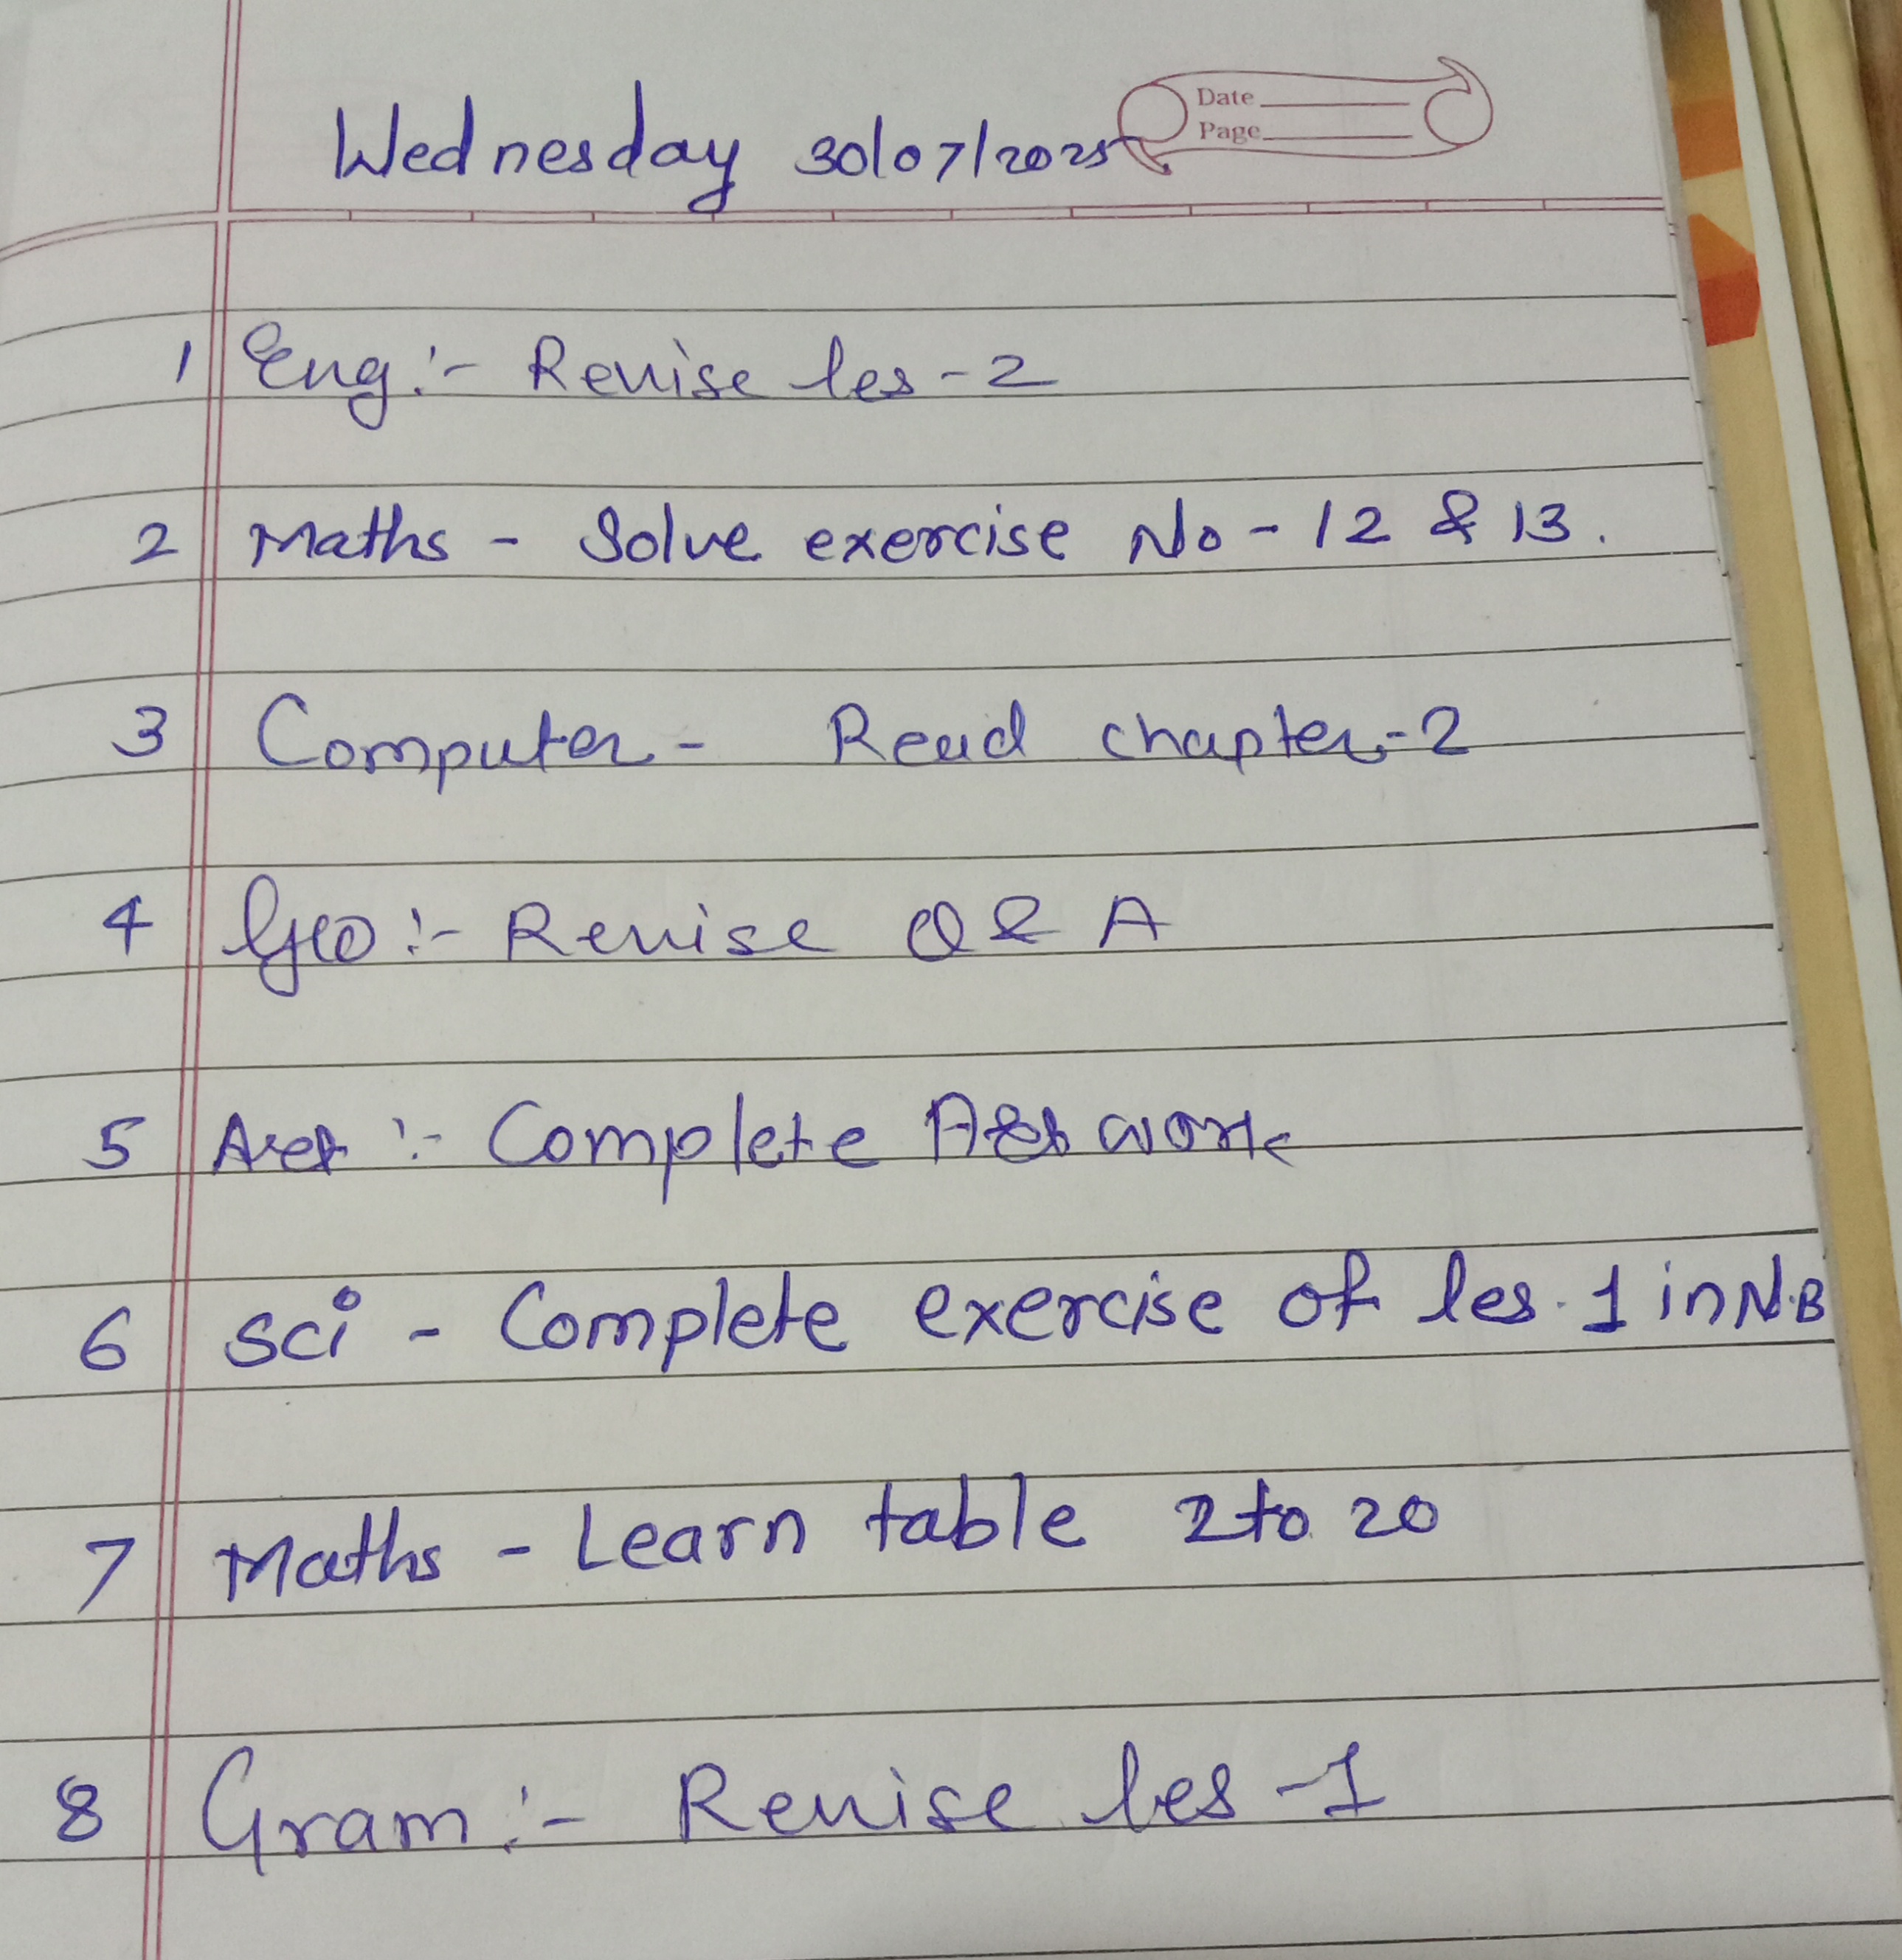 Date
Page
Wednesday 30/07/2025
1 Eng:- Revise les-2
2 Maths - Solve exercise No - 12 & 13.
3 Computer - Read chapter-2
4 Geo :- Revise Q & A
5 :- Complete work
6 Sci - Complete exercise of les. 1 in N.B
7 Maths - Learn table 2 to 20
8 Gram :- Revise les -1